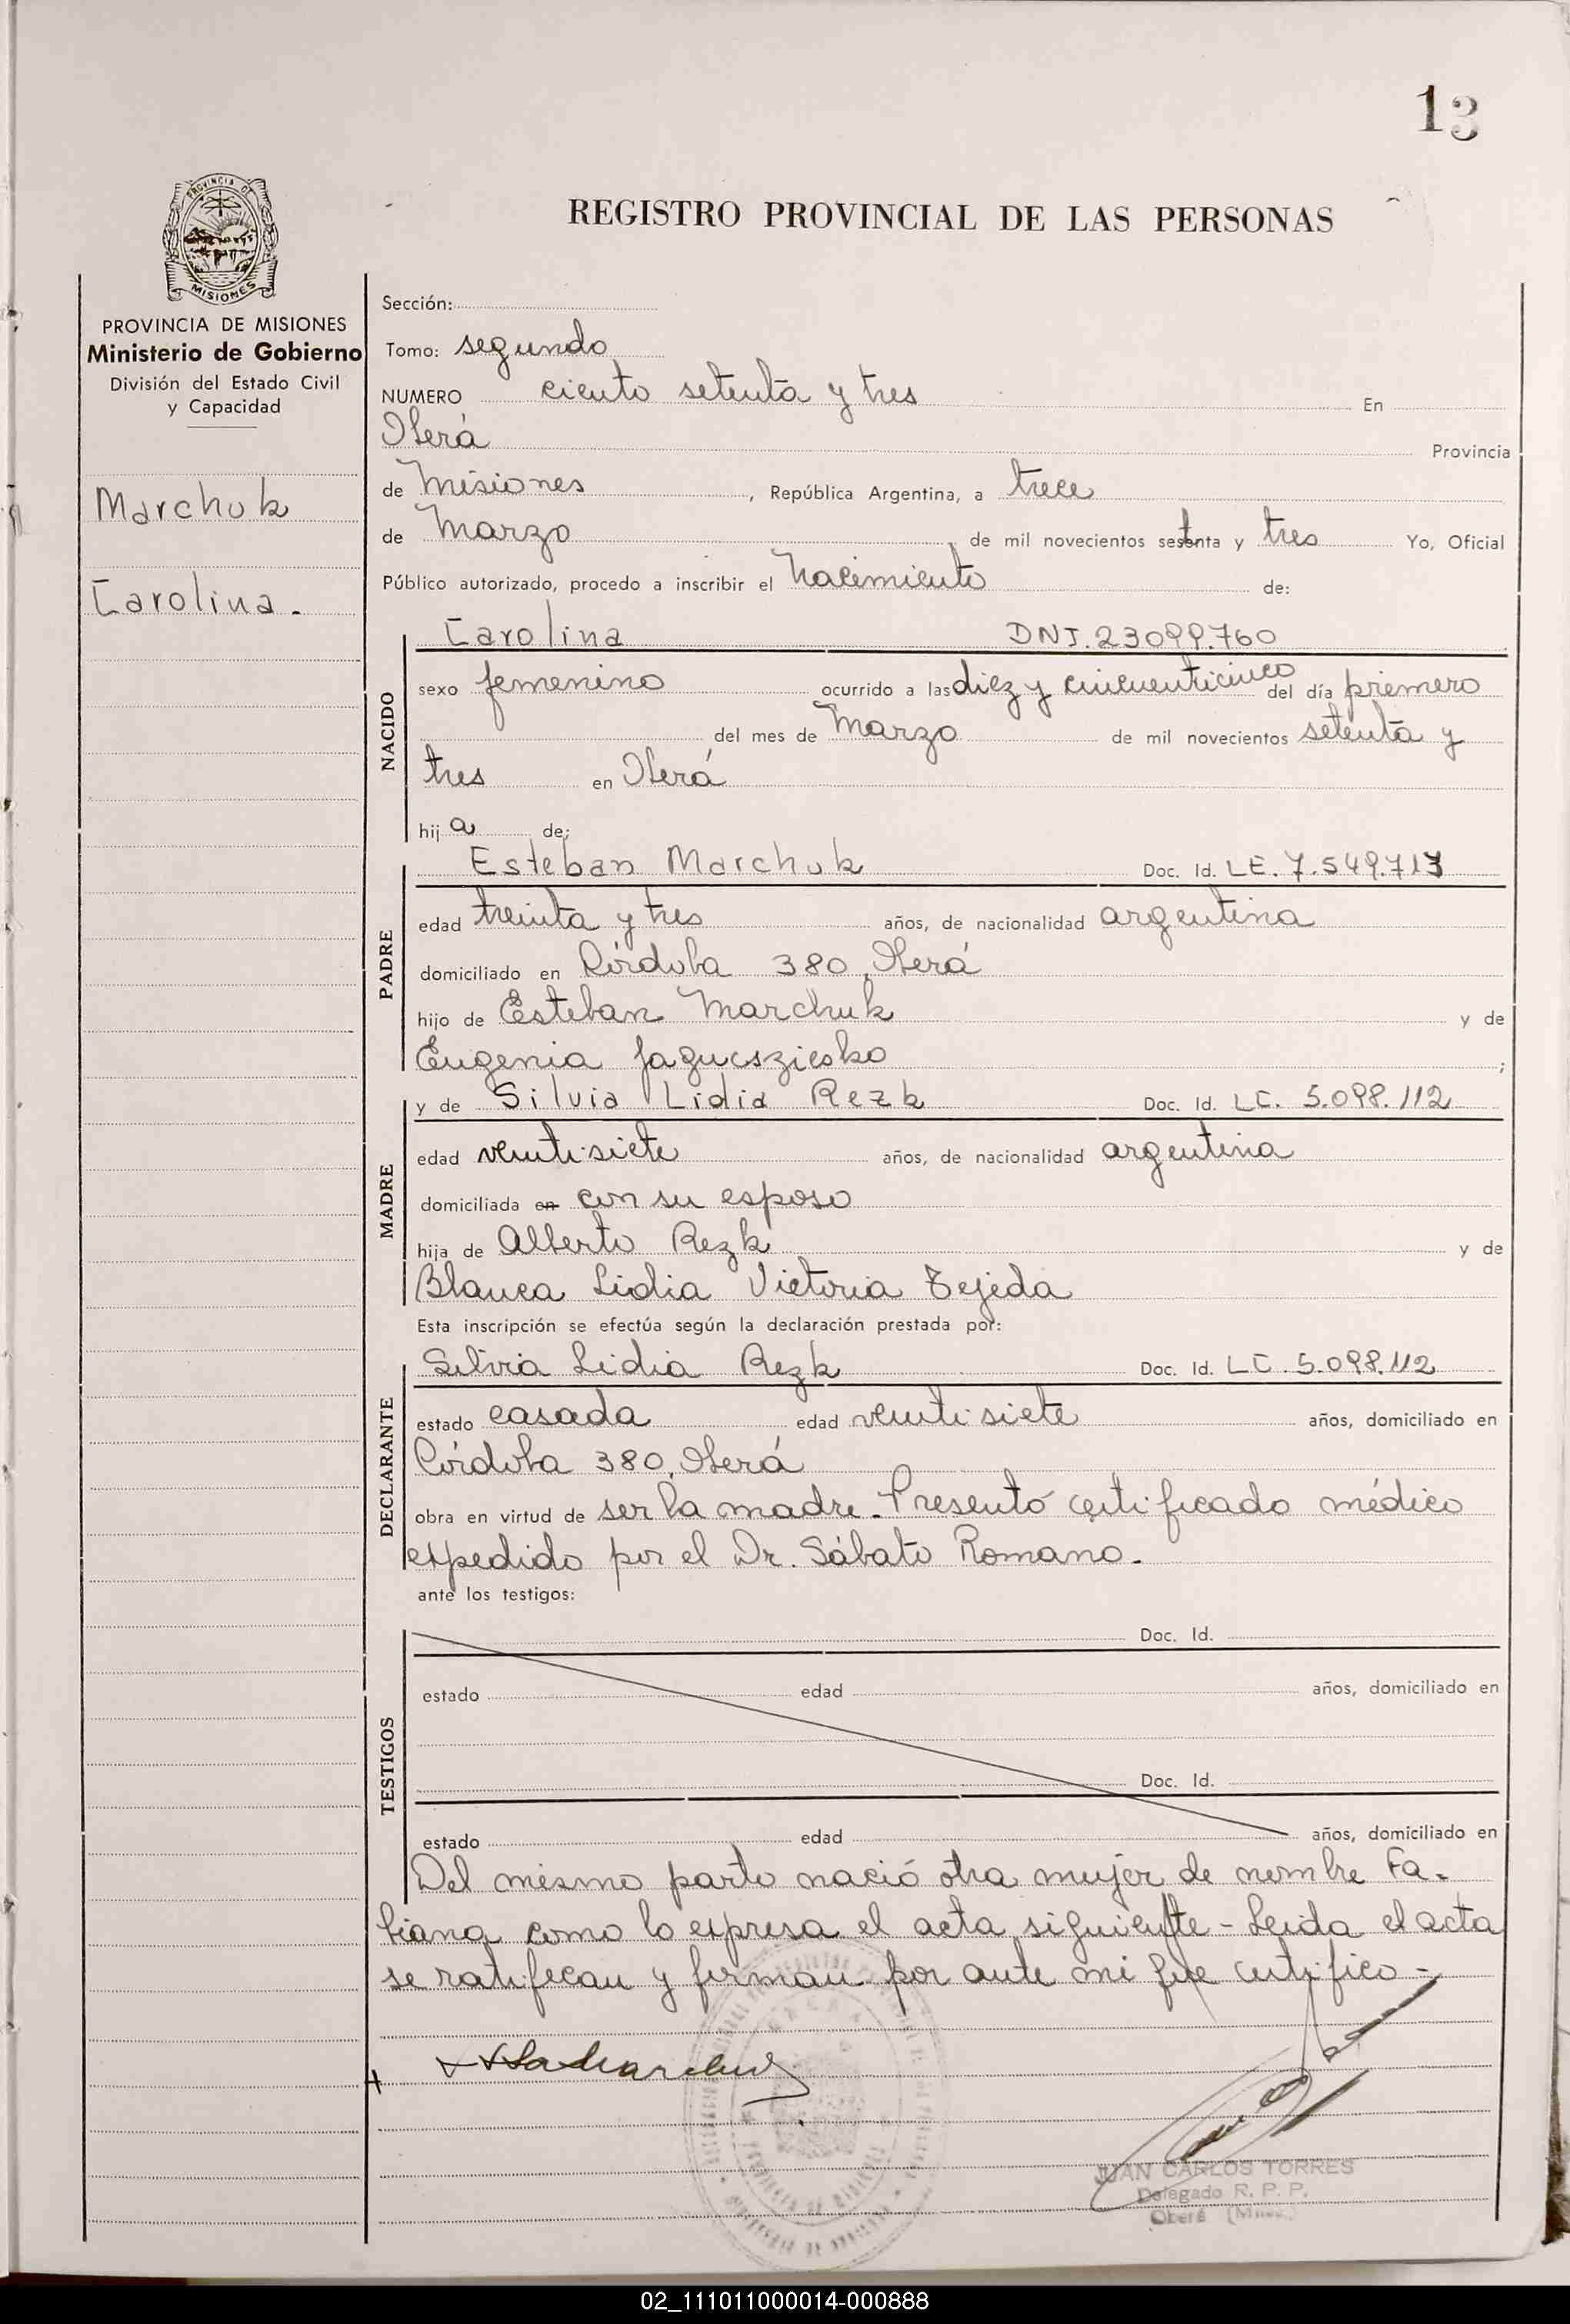 13
PROVINCIA DE
MISIONES
REGISTRO PROVINCIAL DE LAS PERSONAS
PROVINCIA DE MISIONES
Ministerio de Gobierno
División del Estado Civil
y Capacidad
Marchuk
Carolina.
Sección:
Tomo: segundo
NUMERO ciento setenta y tres En
Oberá Provincia
de Misiones, República Argentina, a trece
de Marzo de mil novecientos setenta y tres Yo, Oficial
Público autorizado, procedo a inscribir el nacimiento de:
NACIDO
Carolina DNI.23099.760
sexo femenino ocurrido a las diez y cincuenticinco del día primero
del mes de Marzo de mil novecientos setenta y
tres en Oberá
hija de;
PADRE
Esteban Marchuk Doc. Id. LE. 7.549.713
edad treinta y tres años, de nacionalidad argentina
domiciliado en Córdoba 380, Oberá
hijo de Esteban Marchuk y de
Eugenia ;
MADRE
y de Silvia Lidia Rezk Doc. Id. LC. 5.098.112
edad veintisiete años, de nacionalidad argentina
domiciliada en con su esposo
hija de Alberto Rezk y de
Blanca Lidia Victoria Tejeda
Esta inscripción se efectúa según la declaración prestada por:
DECLARANTE
Silvia Lidia Rezk Doc. Id. LC. 5.098.112
estado casada edad veintisiete años, domiciliado en
Córdoba 380, Oberá
obra en virtud de ser la madre. Presentó certificado médico
expedido por el Dr. Sábato Romano.
ante los testigos:
TESTIGOS
Doc. Id.
estado edad años, domiciliado en
Doc. Id.
estado edad años, domiciliado en
Del mismo parto nació otra mujer de nombre Fa-
biana como lo expresa el acta siguiente - Leida el acta
se ratifican y firman por ante mi que certifico -
JUAN CARLOS TORRES
Delegado R. P. P.
Oberá (Mnes.)
02_111011000014-000888